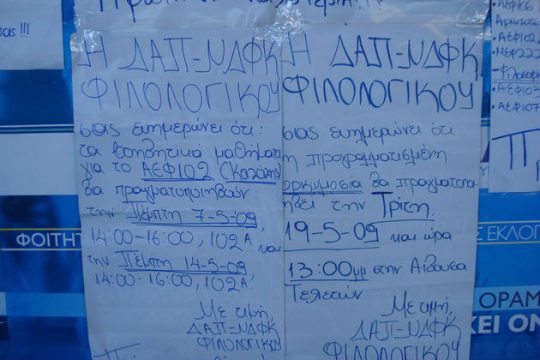 Η ΔΑΠ-ΝΔΦΚ
ΦΙΛΟΛΟΓΙΚΟΥ
σας ενημερώνει ότι:
τα βοηθητικά μαθήματα
για το ΑΕΦ102
θα πραγματοποιηθούν
την Πέμπτη 7-5-09
14:00-16:00, 102Α και
την Πέμπτη 14-5-09
14:00-16:00, 102Α
Με τιμή,
ΔΑΠ-ΝΔΦΚ
ΦΙΛΟΛΟΓΙΚΟΥ
Η ΔΑΠ-ΝΔΦΚ
ΦΙΛΟΛΟΓΙΚΟΥ
σας ενημερώνει ότι:
η προγραμματισμένη
ορκωμοσία θα πραγματοποι
ηθεί την Τρίτη
19-5-09 και ώρα
13:00μμ στην Αίθουσα
Τελετών
Με τιμή
ΔΑΠ-ΝΔΦΚ
ΦΙΛΟΛΟΓΙΚΟΥ
-ΑΕΦ103
-ΑΕΦ107
ΦΟΙΤΗΤ
Σ ΕΚΛΟΓ
ΟΡΑΜ
ΧΕΙ ΟΝ